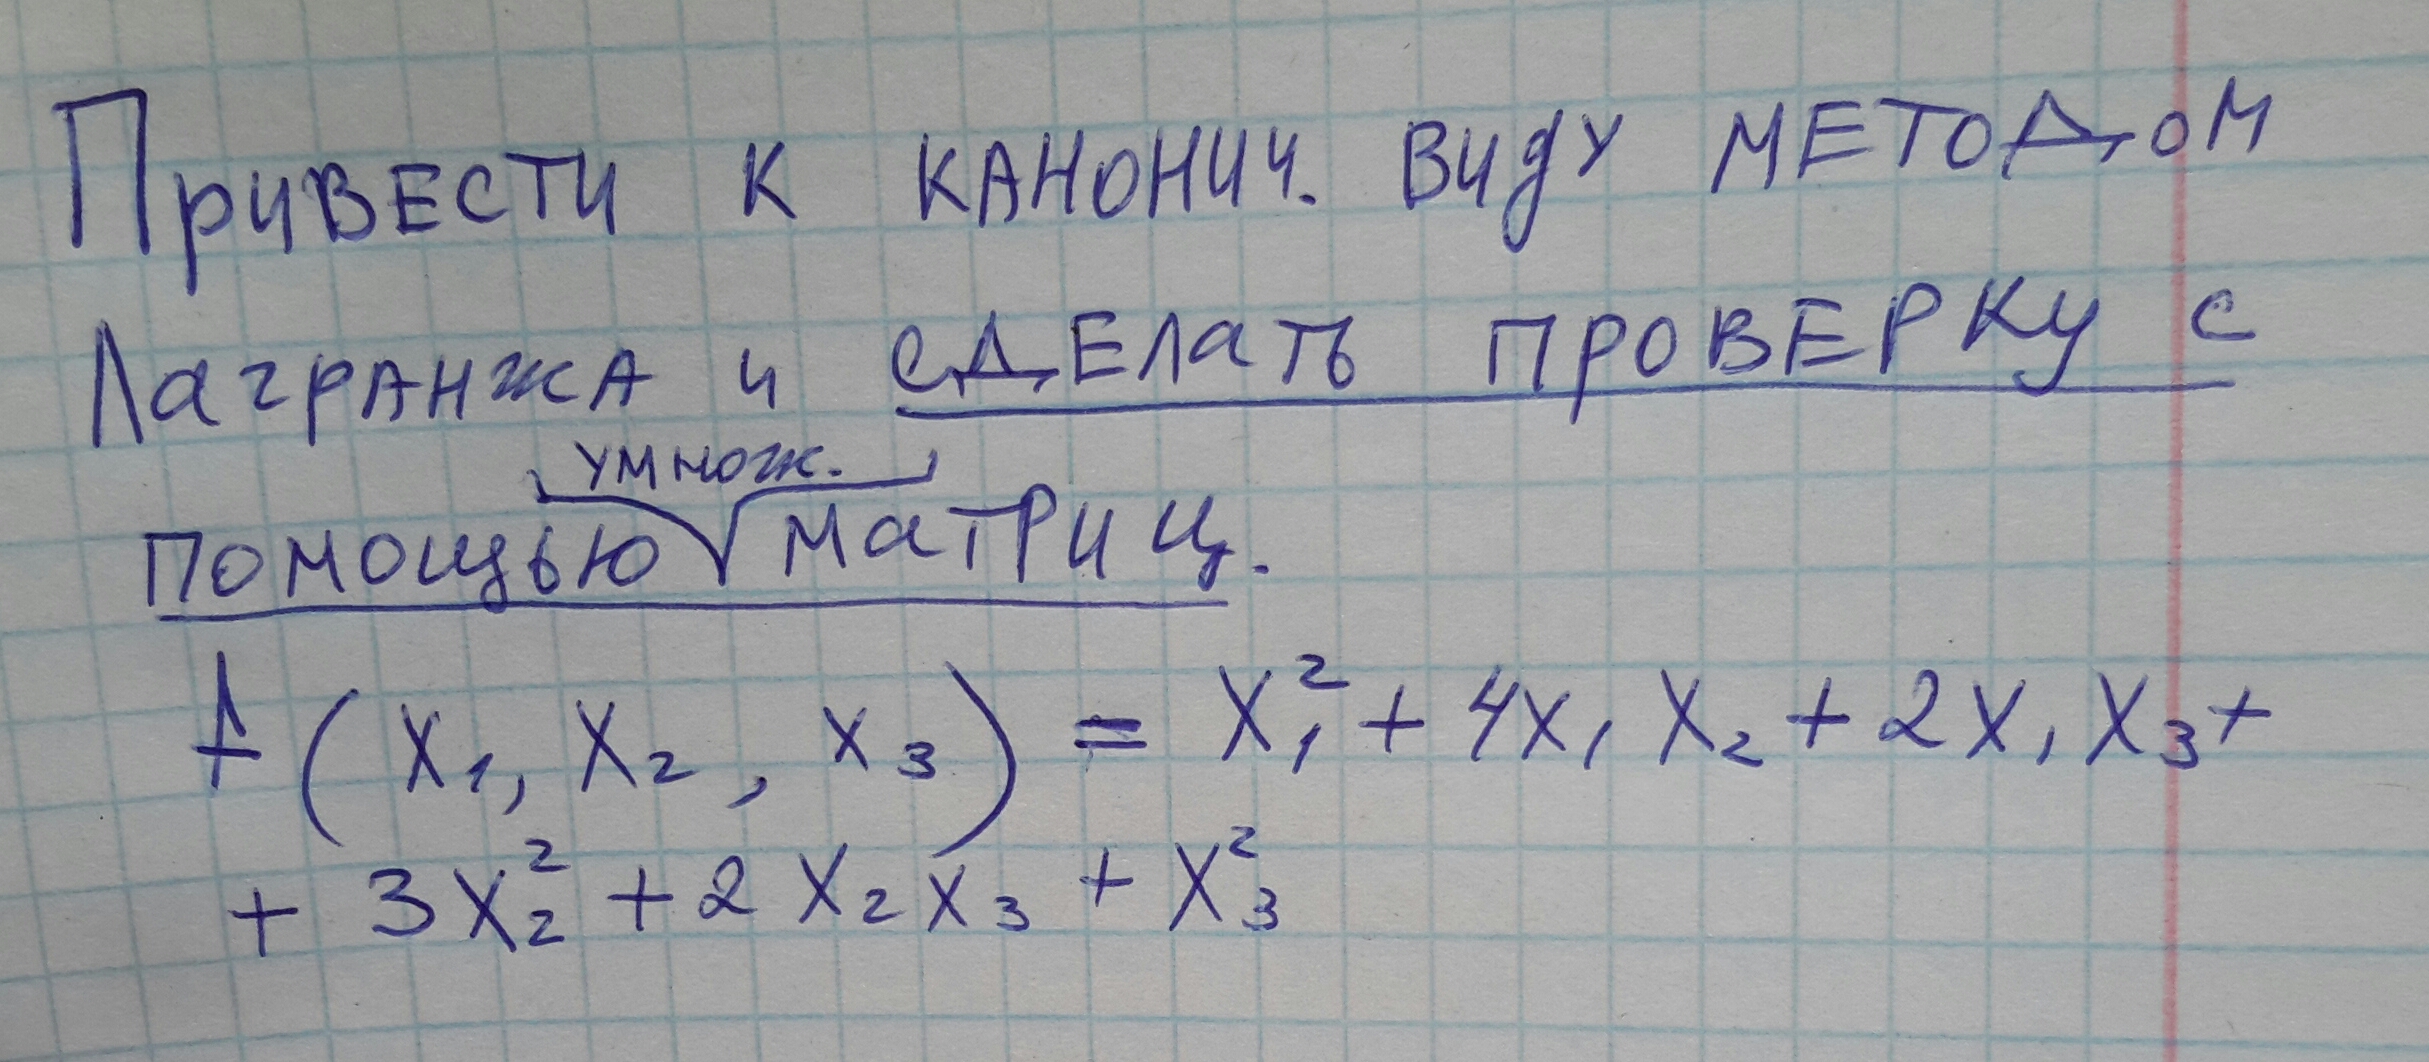 Привести к канонич. виду методом
Лагранжа и сделать проверку с
умнож.
помощью матриц.
f(x₁, x₂, x₃) = x₁² + 4x₁x₂ + 2x₁x₃ +
+ 3x₂² + 2x₂x₃ + x₃²